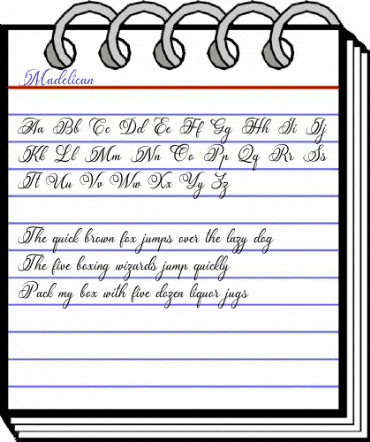 Madelican
Aa Bb Cc Dd Ee Ff Gg Hh Ii Jj
Kk Ll Mm Nn Oo Pp Qq Rr Ss
Tt Uu Vv Ww Xx Yy Zz
The quick brown fox jumps over the lazy dog
The five boxing wizards jump quickly
Pack my box with five dozen liquor jugs